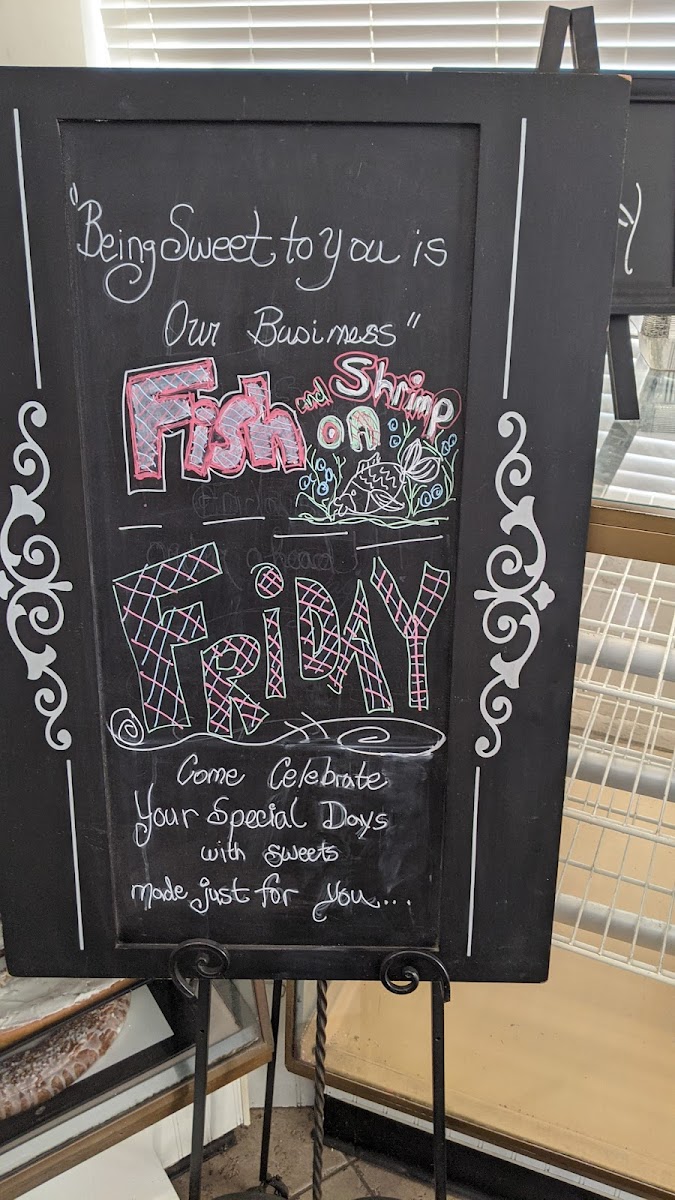 "Being Sweet to You is
Our Business"
Fish and Shrimp
on
FRiDAY
Come Celebrate
Your Special Days
with sweets
made just for you...